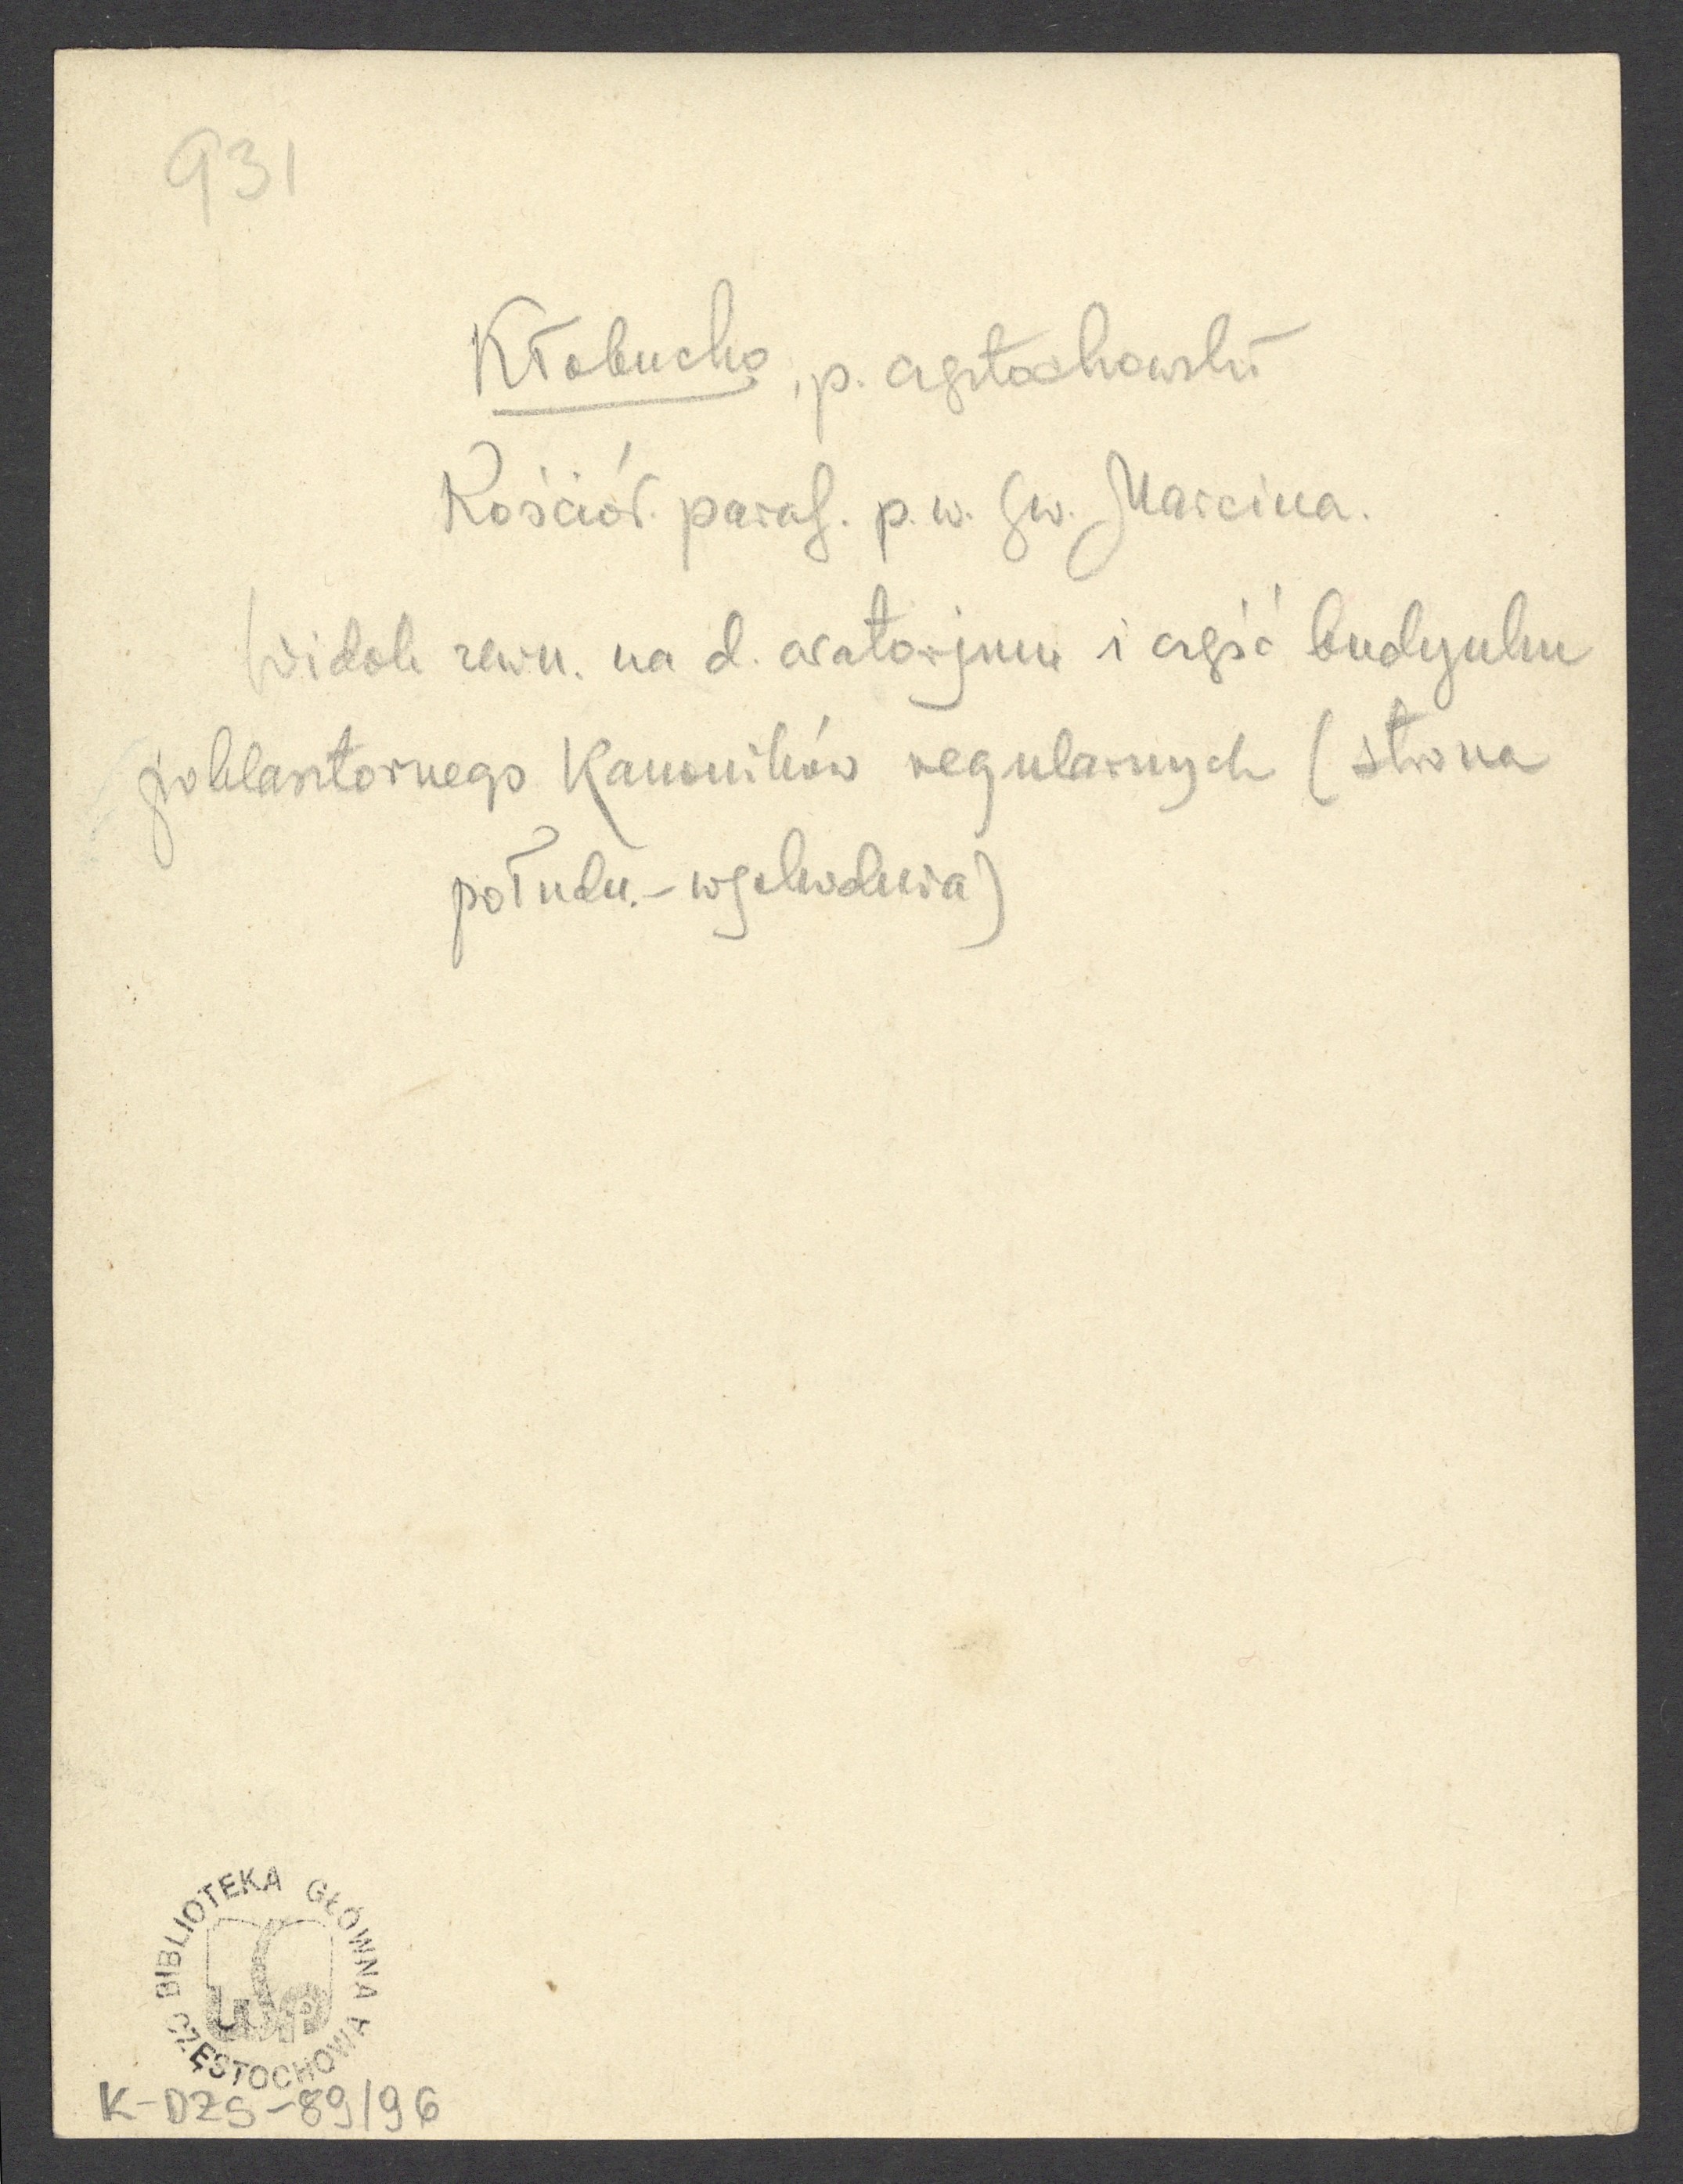 931
Kłobucko, p. częstochowski
Kościół paraf. p. w. Św. Marcina.
Widok zewn. na d. oratorjum i część budynku
poklasztornego Kanoników regularnych (strona
połudn.-wschodnia)
BIBLIOTEKA GŁÓWNA
WSP
CZĘSTOCHOWA
K-DZS-89/96